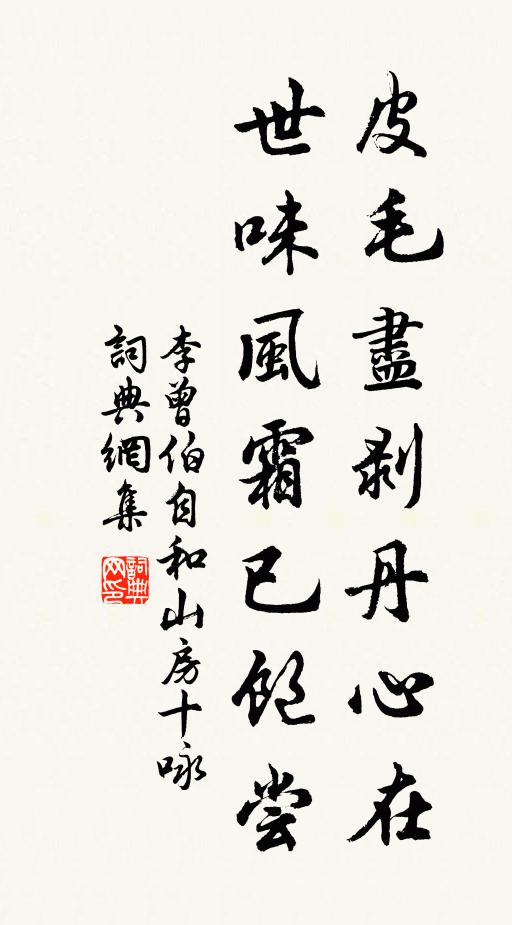 皮毛盡剝丹心在
世味風霜已飽尝
李曾伯自和山房十咏
詞典網集
詞典网印